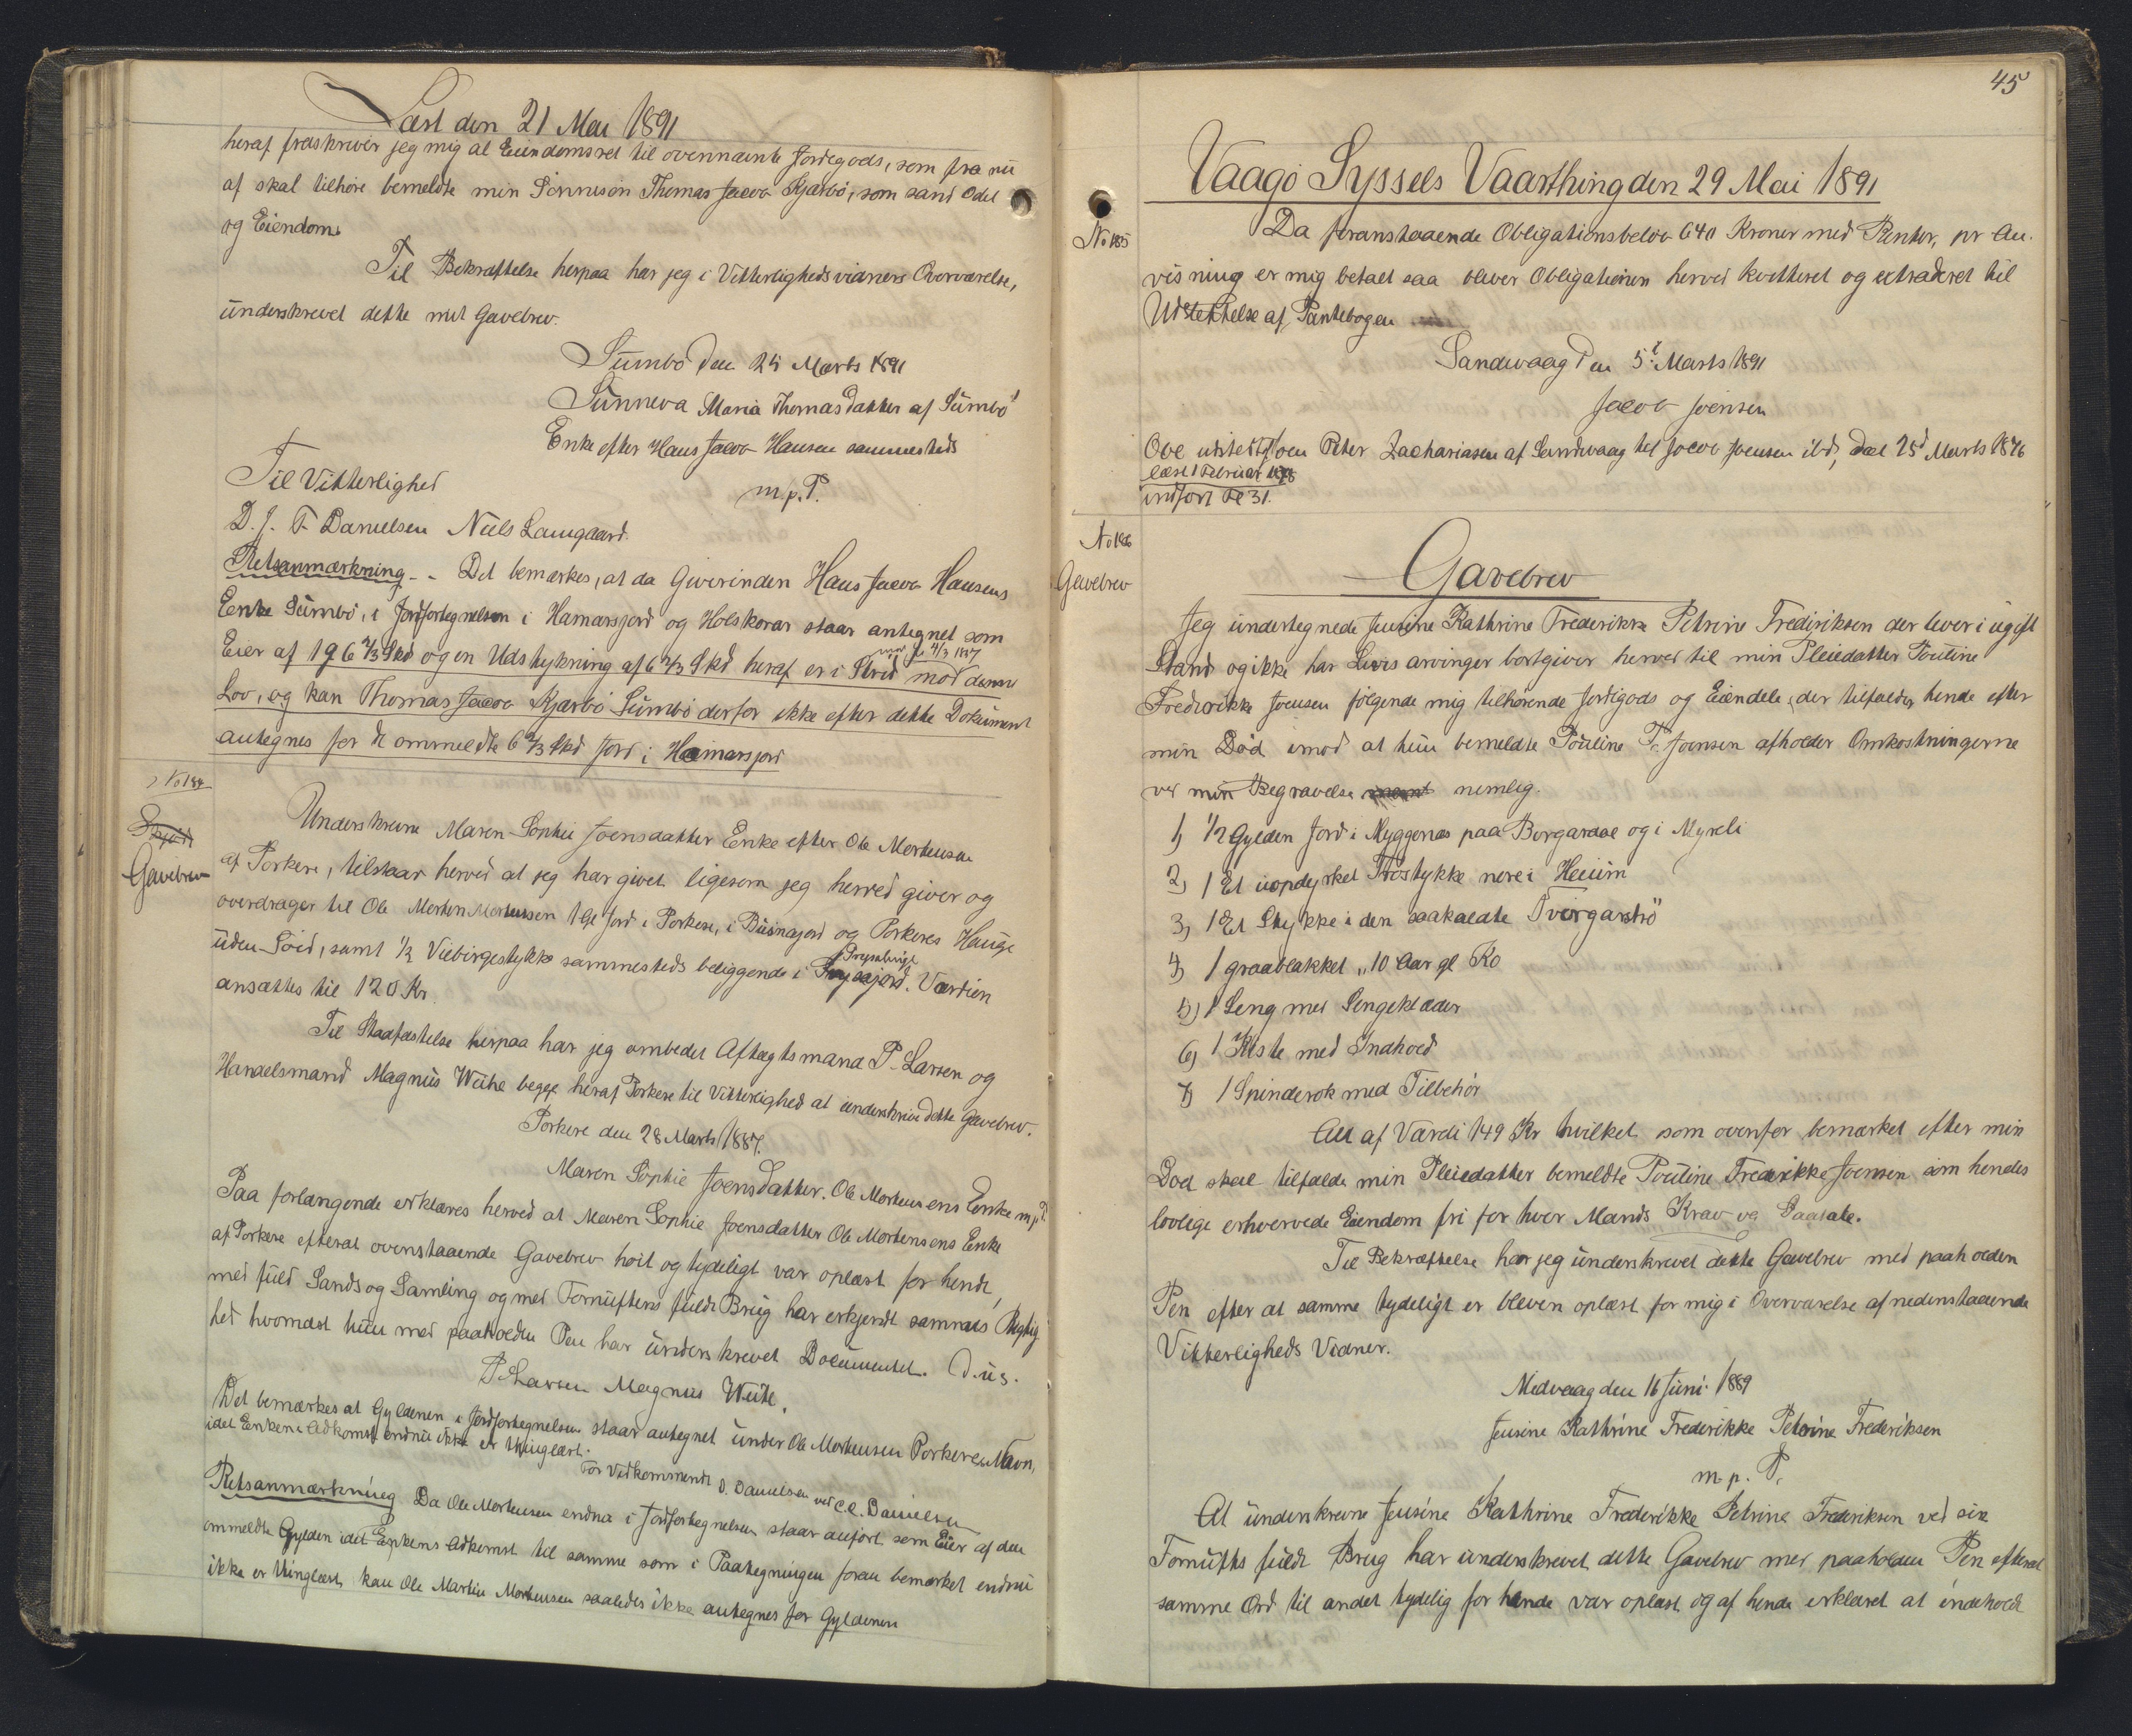 Læst den 21 Mai 1891
heraf fraskriver jeg mig al Eiendomsret til ovennævnte Jordegods, som fra nu
af skal tilhøre bemeldte min Sønneson Thomas Jacob Kjærbo, som sand Odel
og Eiendom.
Til Bekræftelse herpaa har jeg i Vitterlighedsvidners Overværelse,
underskrevet dette mit Gavebrev.
Sumbø den 25 Marts 1891
Sunneva Maria Thomasdatter af Sumbø
Enke efter Hans Jacob Hansen sammesteds
m.p.P.
Til Vitterlighed
D. J. F. Danielsen Niels Lamgaard.
Retsanmærkning - Det bemærkes, at da Giverinden Hans Jacob Hansens
Enke Sumbø, i Jordfortegnelsen i Hamarsjord og Holskorar staar antegnet som
Eier af 19 G 6 2/3 Skd og en Udstykning af 6 2/3 Skd heraf er i Strid mod denne
Lov, og kan Thomas Jacob Kjærbo Sumbø derfor ikke efter dette Dokument
antegnes for de ommeldte 6 2/3 Skd Jord i Hamarsjord
No 184
Skjøde
Gavebrev
Underskrevne Maren Sophie Joensdatter Enke efter Ole Mortensen
af Porkere, tilstaar herved at jeg har givet ligesom jeg herved giver og
overdrager til Ole Morten Mortensen 1 Gl Jord i Porkere, i Búsnajord og Porkeres Hauge
uden Soid, samt 1/2 Viebirgestykke sammesteds beliggende i Frysajord. Værdien
ansættes til 120 Kr.
Til Stadfæstelse herpaa har jeg ombedet Aftægtsmand P. Larsen og
Handelsmand Magnus Weihe begge heraf Porkere til Vitterlighed at underskrive dette Gavebrev.
Porkere den 28 Marts 1887.
Maren Sophie Joensdatter. Ole Mortensens Enke m.p.P.
Paa forlangende erklæres herved at Maren Sophie Joensdatter Ole Mortensens Enke
af Porkere efterat ovenstaaende Gavebrev høit og tydeligt var oplæst for hende,
med fuld Sands og Samling og med Fornuftens fulde Brug har erkjendt sammes Rigtig
hed hvornæst hun med paaholden Pen har underskrevet Documentet. D.u.s.
P. Larsen Magnus Weihe.
Det bemærkes at Gyldenen i Jordfortegnelsen staar antegnet under Ole Mortensen Porkeres Navn,
idet Enkens Adkomst endnu ikke er thinglæst.
For Vedkommende D. Danielsen ved C.C. Danielsen
Retsanmærkning Da Ole Mortensen endnu i Jordfortegnelsen staar anført som Eier af den
ommeldte Gylden idet Enkens Adkomst til samme som i Paategningen foran bemærket endnu
ikke er thinglæst, kan Ole Martin Mortensen saaledes ikke antegnes for Gyldenen
45
Vaagø Syssels Vaarthing den 29 Mai 1891
No 185
Da foranstaaende Obligationsbeløb 640 Kroner med Renter, pr An-
visning er mig betalt saa bliver Obligationen herved kvitteret og extraderet til
Udslettelse af Pantebogen
Sandevaag den 5t Marts 1891
Jacob Joensen
Obl udstedt Joen Peter Zachariasen af Sandevaag til Jacob Joensen ibd, dat 25d Marts 1876
læst 1 Februar 1878
indført Fol 31.
No 186
Gavebrev
Gavebrev
Jeg undertegnede Jensine Kathrine Frederikke Petrine Frederiksen der lever i ugift
Stand og ikke har Livsarvinger bortgiver herved til min Pleiedatter Pouline
Frederikke Joensen følgende mig tilhørende Jordegods og Eiendele, der tilfalder hende efter
min Død imod at hun bemeldte Pouline F. Joensen afholder Omkostningerne
ved min Begravelse nemlig.
1, 1/2 Gylden Jord i Myggenæs paa Borgardal og i Myreli
2, 1 Et uopdyrket Trøstykke nere i Heium
3, 1 Et Stykke i den saakaldte Tvørgartrø
4, 1 graablakket „10 Aar gl Ko
5, 1 Seng med Sengeklæder
6, 1 Kiste med Indhold
7, 1 Spinderok med Tilbehør
Alt af Værdi 149 Kr hvilket som ovenfor bemærket efter min
Død skal tilfalde min Pleiedatter bemeldte Pouline Frederikke Joensen som hendes
lovlige erhvervede Eiendom fri for hver Mands Krav og Paatale.
Til Bekræftelse har jeg underskrevet dette Gavebrev med paaholden
Pen efter at samme tydeligt er bleven oplæst for mig i Overværelse af nedenstaaende
Vitterligheds Vidner.
Midvaag den 16 Juni 1889
Jensine Kathrine Frederikke Petrine Frederiksen
m.p.P.
At underskrevne Jensine Kathrine Frederikke Petrine Frederiksen ved sin
Fornufts fulde Brug har underskrevet dette Gavebrev med paaholden Pen efterat
samme Ord til andet tydelig for hende var oplæst og af hende erklæret at indeholde